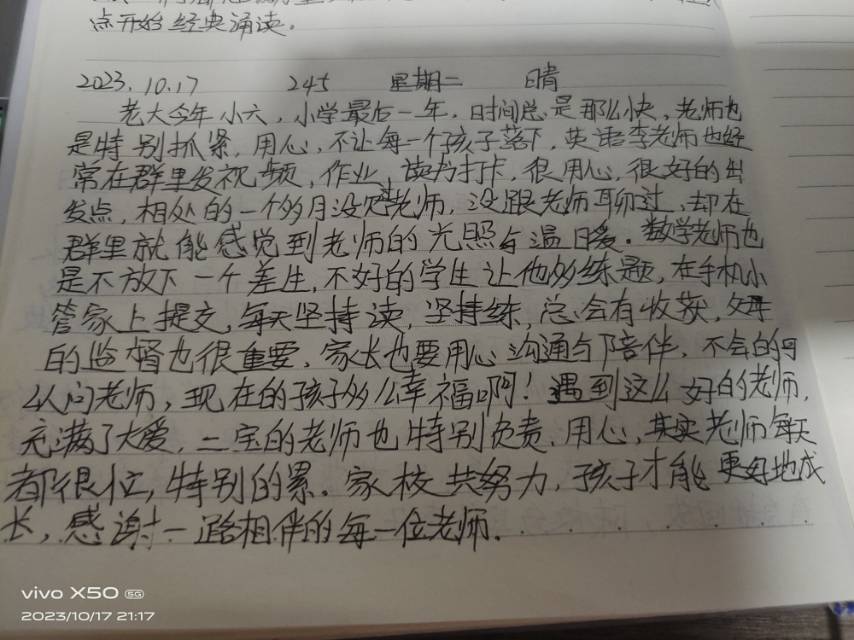 点开始经典诵读。
2023.10.17 245 星期二 晴
老大今年小六，小学最后一年，时间总是那么快，老师也
是特别抓紧，用心，不让每一个孩子落下，英语李老师也经
常在群里发视频，作业，读书打卡，很用心，很好的出
发点，相处的一个多月没见老师，没跟老师聊过，却在
群里就能感觉到老师的光照与温暖。数学老师也
是不放下一个差生，不好的学生让他多练题，在手机小
管家上提交，每天坚持读，坚持练，总会有收获，父母
的监督也很重要，家长也要用心沟通与陪伴，不会的可
以问老师，现在的孩子多么幸福啊！遇到这么好的老师，
充满了大爱，二宝的老师也特别负责，用心，其实老师每天
都很忙，特别的累。家校共努力，孩子才能更好地成
长，感谢一路相伴的每一位老师．
vivo X50 5G
2023/10/17 21:17